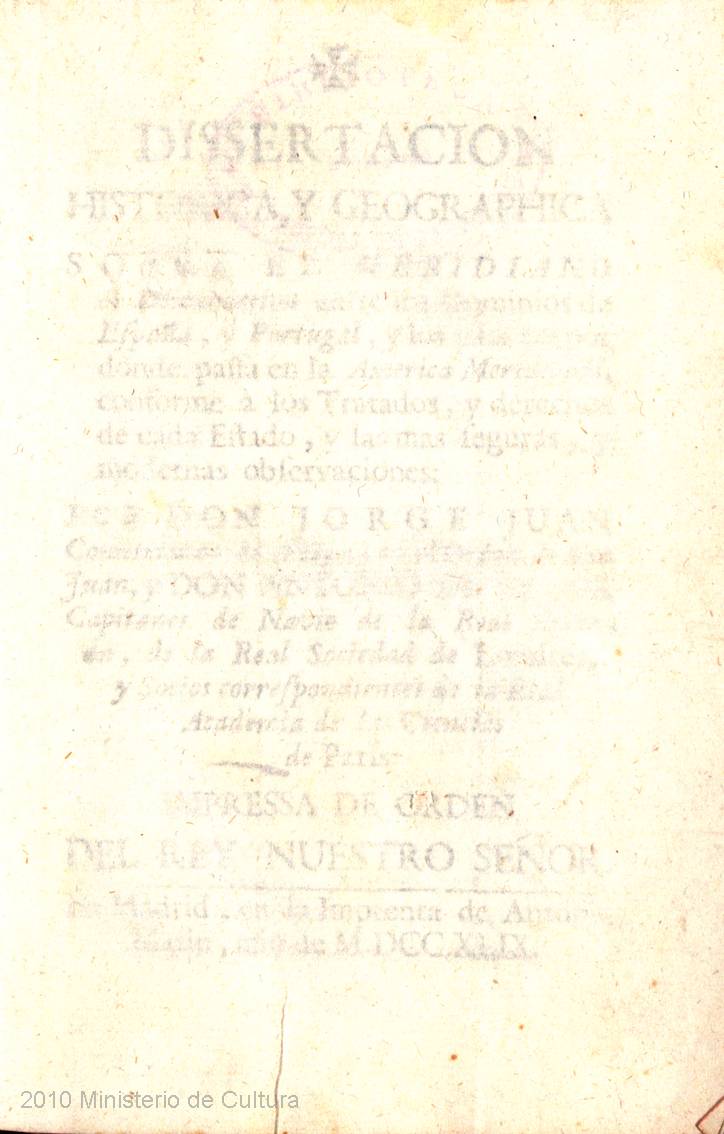 DISSERTACION
HISTORICA, Y GEOGRAPHICA
SOBRE EL MERIDIANO
de Demarcacion entre los Dominios de
España, y Portugal, y los
donde passa en la America Meridional,
conforme à los Tratados, y derechos
de cada Estado, y las mas seguras, y
modernas observaciones:
POR DON JORGE JUAN
Juan, y DON
Capitanes de Navio de la Real
de la Real Sociedad de Londres,
y Socios correspondientes de la Real
Academia de las Ciencias
de Paris
IMPRESSA DE ORDEN
DEL REY NUESTRO SEÑOR
En Madrid, en la Imprenta de Antonio
Marin, año de M.DCC.XLIX.
2010 Ministerio de Cultura